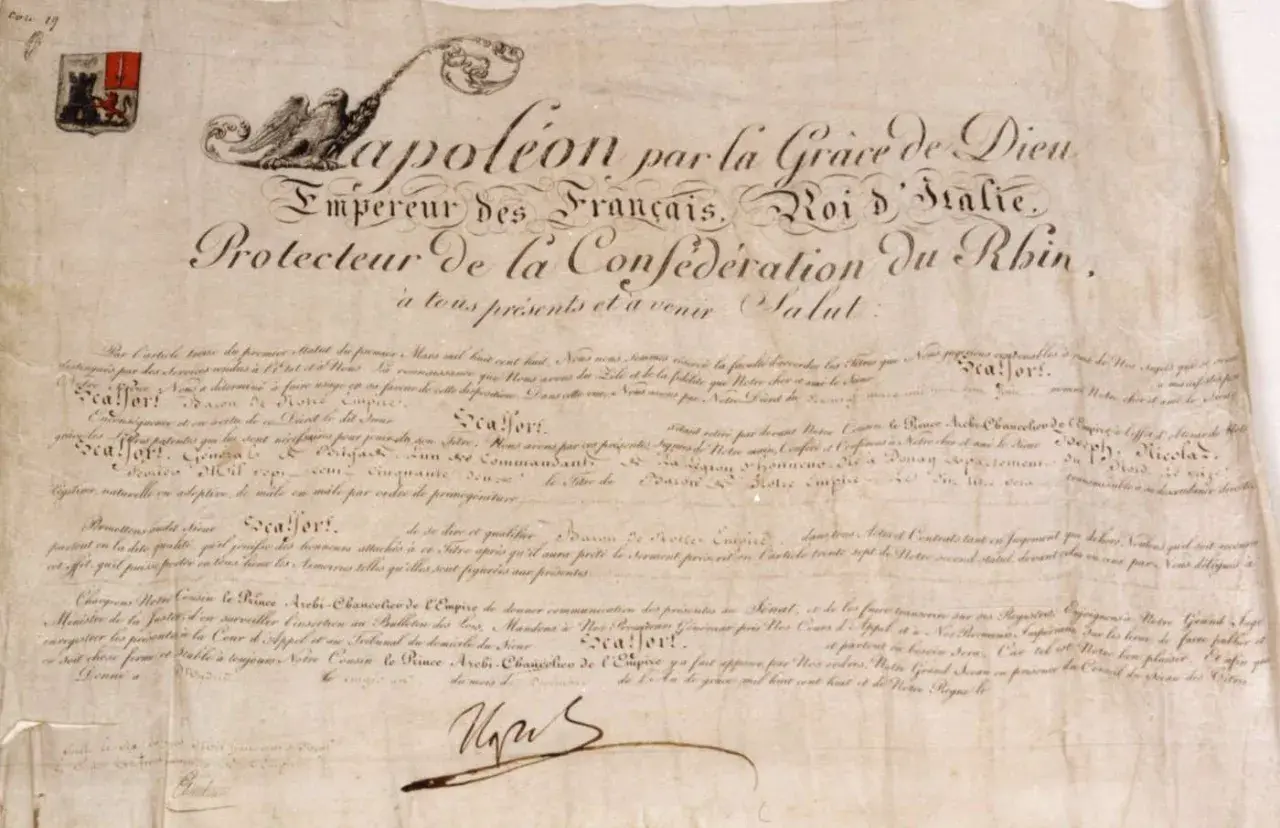 19
Napoléon par la Grâce de Dieu
Empereur des Français, Roi d'Italie,
Protecteur de la Confédération du Rhin,
à tous présents et à venir Salut:
Par l'article treize du premier Statut du premier Mars mil huit cent huit, Nous nous sommes réservé la faculté d'accorder les Titres que Nous jugerions convenables à ceux de Nos Sujets qui se seront
distingués par des Services rendus à l'Etat et à Nous. La connaissance que Nous avons du Zèle et de la fidélité que Notre cher et amé le Sieur Scalfort.
Notre Service, Nous a déterminé à faire usage en sa faveur de cette disposition. Dans cette vue, Nous avons par Notre Décret du nommé Notre cher et amé le Sieur
Scalfort Baron de Notre Empire.
En conséquence et en vertu de ce Décret le dit Sieur Scalfort. s'étant retiré par devant Notre Cousin le Prince Archi-Chancelier de l'Empire à l'effet d'obtenir de Notre
grâce les Lettres patentes qui lui sont nécessaires pour jouir de son Titre, Nous avons par ces présentes Signées de Notre main, Conféré et Conférons à Notre cher et amé le Sieur Joseph Nicolas
Scalfort, Général de Brigade l'un des Commandants de la Légion d'honneur Né à Douay Département du Nord le vingt
février Mil sept cent cinquante deux le Titre de Baron de Notre Empire Le dit titre sera transmissible à sa descendance directe
légitime, naturelle ou adoptive, de mâle en mâle par ordre de primogéniture.
Permettons audit Sieur Scalfort. de se dire et qualifier Baron de Notre Empire dans tous Actes et Contrats tant en Jugement que dehors, Voulons qu'il soit reconnu
partout en la dite qualité, qu'il jouisse des honneurs attachés à ce Titre après qu'il aura prêté le Serment prescrit en l'article trente sept de Notre second statut, devant celui ou ceux par Nous délégués à
cet effet, qu'il puisse porter en tous lieux les Armoiries telles qu'elles sont figurées aux présentes.
Chargeons Notre Cousin le Prince Archi-Chancelier de l'Empire de donner communication des présentes au Sénat, et de les faire transcrire sur ses Registres, Enjoignons à Notre Grand Juge
Ministre de la Justice d'en surveiller l'insertion au Bulletin des Lois, Mandons à Nos Procureurs Généraux près Nos Cours d'Appel et à Nos Procureurs Impériaux Sur les lieux de faire publier et
enregistrer les présentes à la Cour d'Appel et au Tribunal du domicile du Sieur Scalfort. et partout où besoin Sera. Car tel est Notre bon plaisir. Et afin que
ce soit chose ferme et stable à toujours Notre Cousin le Prince Archi-Chancelier de l'Empire y a fait apposer par Nos ordres, Notre Grand Sceau en présence du Conseil du Sceau des Titres
Donné à le du mois de de l'An de grâce mil huit cent huit et de Notre Règne le